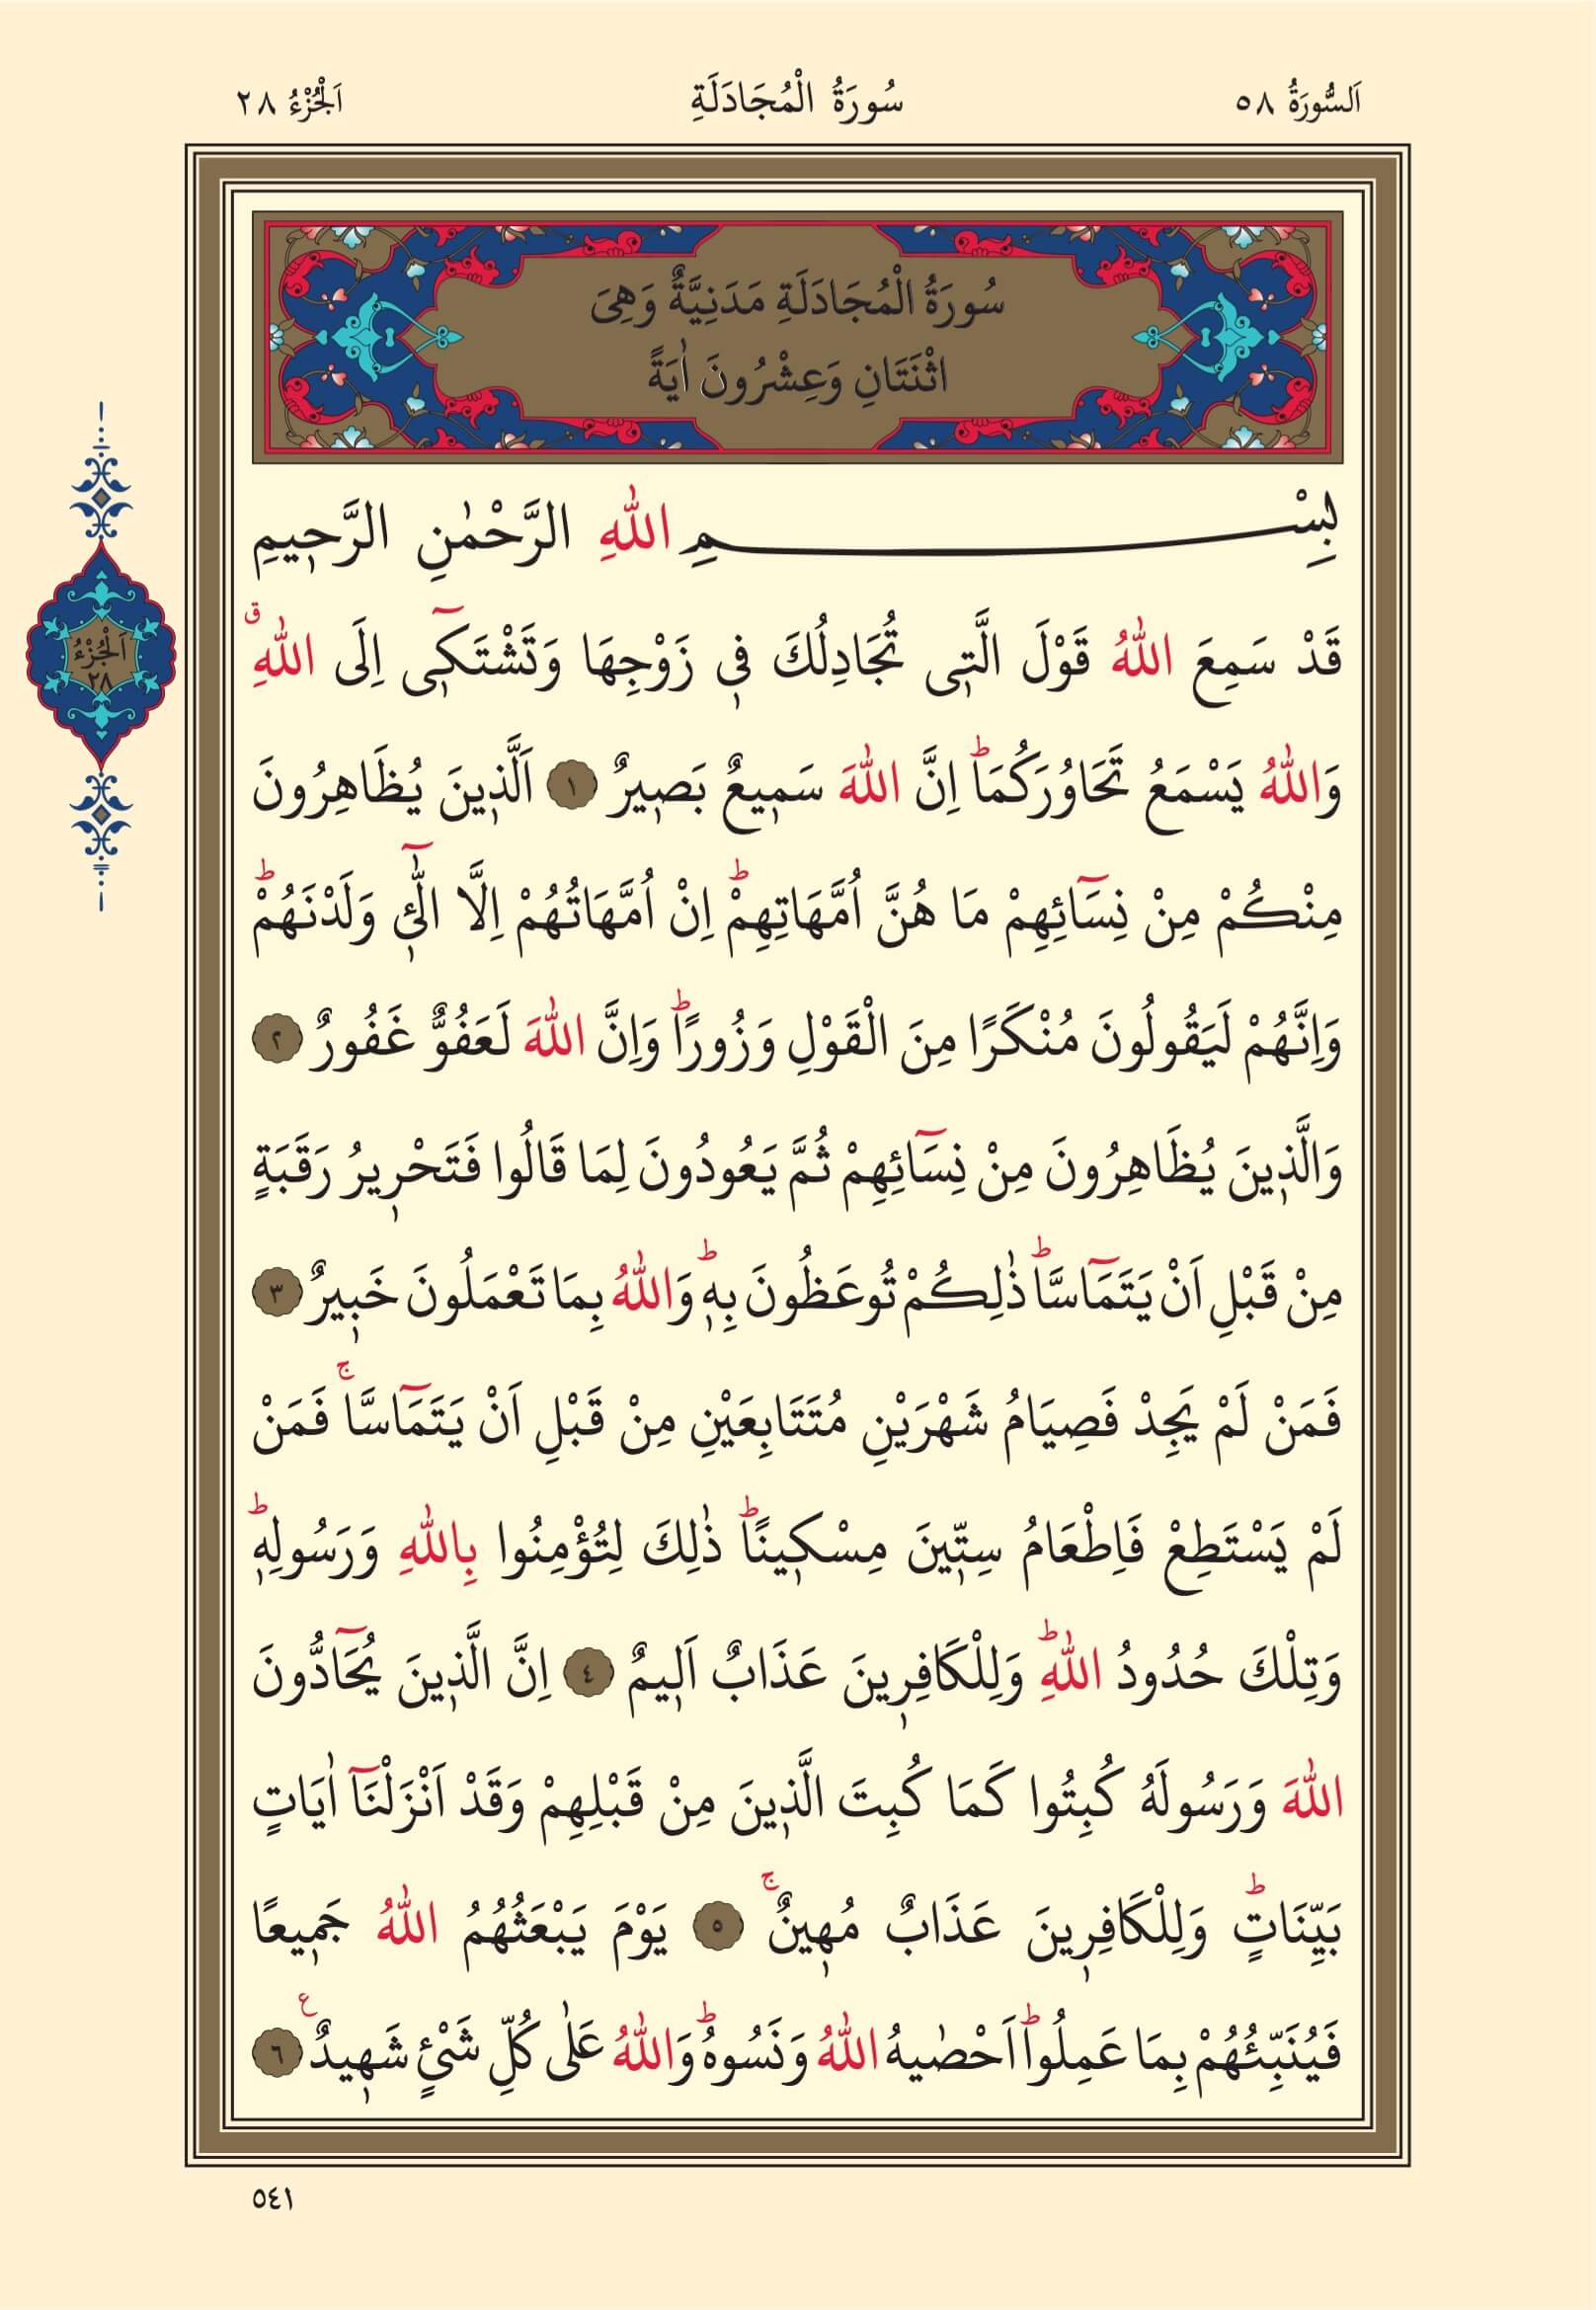 اَلسُّورَةُ ٥٨
سُورَةُ الْمُجَادَلَةِ
اَلْجُزْءُ ٢٨
سُورَةُ الْمُجَادَلَةِ مَدَنِيَّةٌ وَهِىَ
اثْنَتَانِ وَعِشْرُونَ اٰيَةً
بِسْمِ اللّٰهِ الرَّحْمٰنِ الرَّح۪يمِ
قَدْ سَمِعَ اللّٰهُ قَوْلَ الَّت۪ى تُجَادِلُكَ ف۪ى زَوْجِهَا وَتَشْتَك۪ٓى اِلَى اللّٰهِۗ
وَاللّٰهُ يَسْمَعُ تَحَاوُرَكُمَاۜ اِنَّ اللّٰهَ سَم۪يعٌ بَص۪يرٌ ١ اَلَّذ۪ينَ يُظَاهِرُونَ
مِنْكُمْ مِنْ نِسَٓائِهِمْ مَا هُنَّ اُمَّهَاتِهِمْۜ اِنْ اُمَّهَاتُهُمْ اِلَّا الّٰٓـ۪ٔى وَلَدْنَهُمْۜ
وَاِنَّهُمْ لَيَقُولُونَ مُنْكَرًا مِنَ الْقَوْلِ وَزُورًاۜ وَاِنَّ اللّٰهَ لَعَفُوٌّ غَفُورٌ ٢
وَالَّذ۪ينَ يُظَاهِرُونَ مِنْ نِسَٓائِهِمْ ثُمَّ يَعُودُونَ لِمَا قَالُوا فَتَحْر۪يرُ رَقَبَةٍ
مِنْ قَبْلِ اَنْ يَتَمَٓاسَّاۜ ذٰلِكُمْ تُوعَظُونَ بِه۪ۜ وَاللّٰهُ بِمَا تَعْمَلُونَ خَب۪يرٌ ٣
فَمَنْ لَمْ يَجِدْ فَصِيَامُ شَهْرَيْنِ مُتَتَابِعَيْنِ مِنْ قَبْلِ اَنْ يَتَمَٓاسَّاۚ فَمَنْ
لَمْ يَسْتَطِعْ فَاِطْعَامُ سِتّ۪ينَ مِسْك۪ينًاۜ ذٰلِكَ لِتُؤْمِنُوا بِاللّٰهِ وَرَسُولِه۪ۜ
وَتِلْكَ حُدُودُ اللّٰهِۜ وَلِلْكَافِر۪ينَ عَذَابٌ اَل۪يمٌ ٤ اِنَّ الَّذ۪ينَ يُحَٓادُّونَ
اللّٰهَ وَرَسُولَهُ كُبِتُوا كَمَا كُبِتَ الَّذ۪ينَ مِنْ قَبْلِهِمْ وَقَدْ اَنْزَلْنَٓا اٰيَاتٍ
بَيِّنَاتٍۜ وَلِلْكَافِر۪ينَ عَذَابٌ مُه۪ينٌۚ ٥ يَوْمَ يَبْعَثُهُمُ اللّٰهُ جَم۪يعًا
فَيُنَبِّئُهُمْ بِمَا عَمِلُواۜ اَحْصٰيهُ اللّٰهُ وَنَسُوهُۜ وَاللّٰهُ عَلٰى كُلِّ شَىْءٍ شَه۪يدٌ ع ٦
اَلْجُزْءُ
٢٨
٥٤١